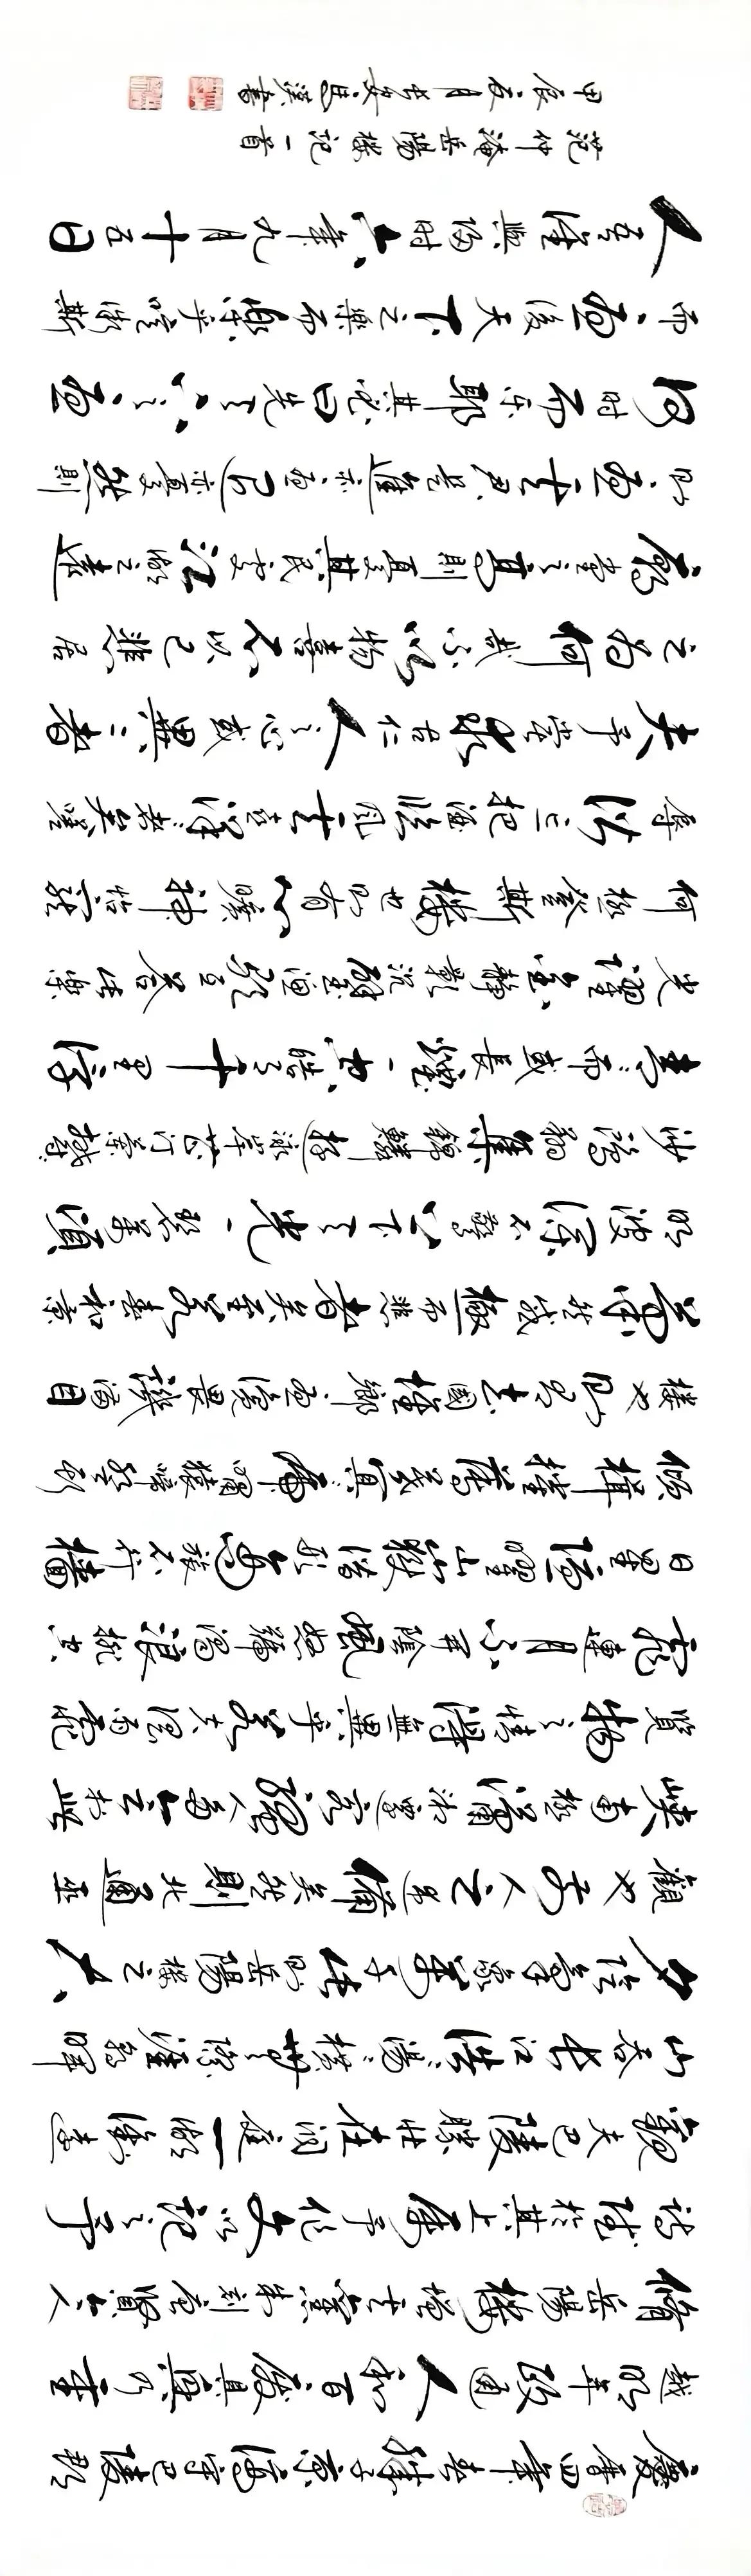 慶曆四年春滕子京謫守巴陵郡
越明年政通人和百廢具興乃重
修岳陽樓增其舊制刻唐賢今人
詩賦於其上屬予作文以記之予
觀夫巴陵勝狀在洞庭一湖銜遠
山吞長江浩浩湯湯橫無際涯朝暉
夕陰氣象萬千此則岳陽樓之大
觀也前人之述備矣然則北通巫
峽南極瀟湘遷客騷人多會於此
覽物之情得無異乎若夫淫雨霏
霏連月不開陰風怒號濁浪排空
日星隱曜山嶽潛形商旅不行檣
傾楫摧薄暮冥冥虎嘯猿啼登斯
樓也則有去國懷鄉憂讒畏譏滿目
蕭然感極而悲者矣至若春和景
明波瀾不驚上下天光一碧萬頃
沙鷗翔集錦鱗游泳岸芷汀蘭鬱鬱
青青而或長煙一空皓月千里浮
光躍金靜影沉璧漁歌互答此樂
何極登斯樓也則有心曠神怡寵
辱偕忘把酒臨風其喜洋洋者矣嗟
夫予嘗求古仁人之心或異二者
之為何哉不以物喜不以己悲居
廟堂之高則憂其民處江湖之遠
則憂其君是進亦憂退亦憂然則
何時而樂耶其必曰先天下之憂
而憂後天下之樂而樂乎噫微斯
人吾誰與歸時六年九月十五日
范仲淹岳陽樓記一首
甲辰夏月長安書